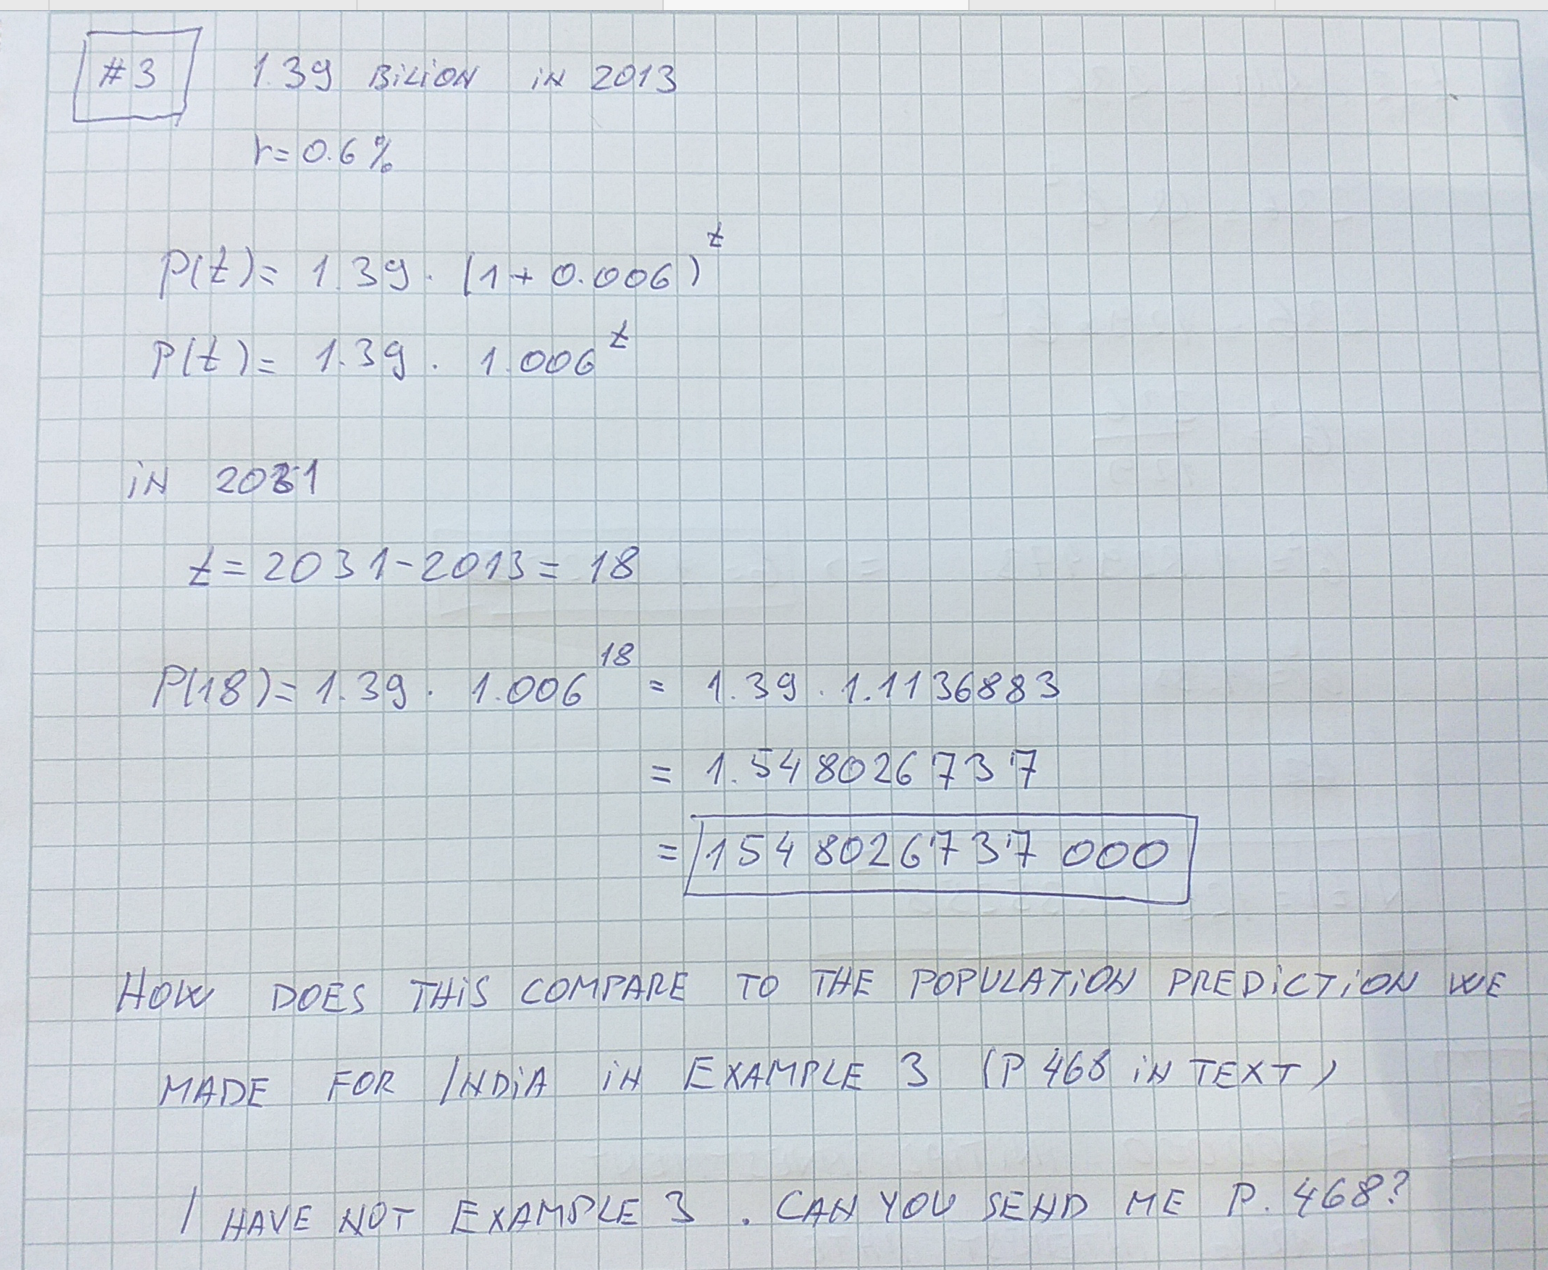 #3 1.39 BILION IN 2013
r=0.6%
P(t)= 1.39 · (1+0.006)^t
P(t)= 1.39 · 1.006^t
IN 2031
t=2031-2013=18
P(18)=1.39 · 1.006^18 = 1.39 · 1.1136883
= 1.5480267 37
= 1548026737 000
HOW DOES THIS COMPARE TO THE POPULATION PREDICTION WE
MADE FOR INDIA IN EXAMPLE 3 (P 468 IN TEXT)
I HAVE NOT EXAMPLE 3. CAN YOU SEND ME P. 468?